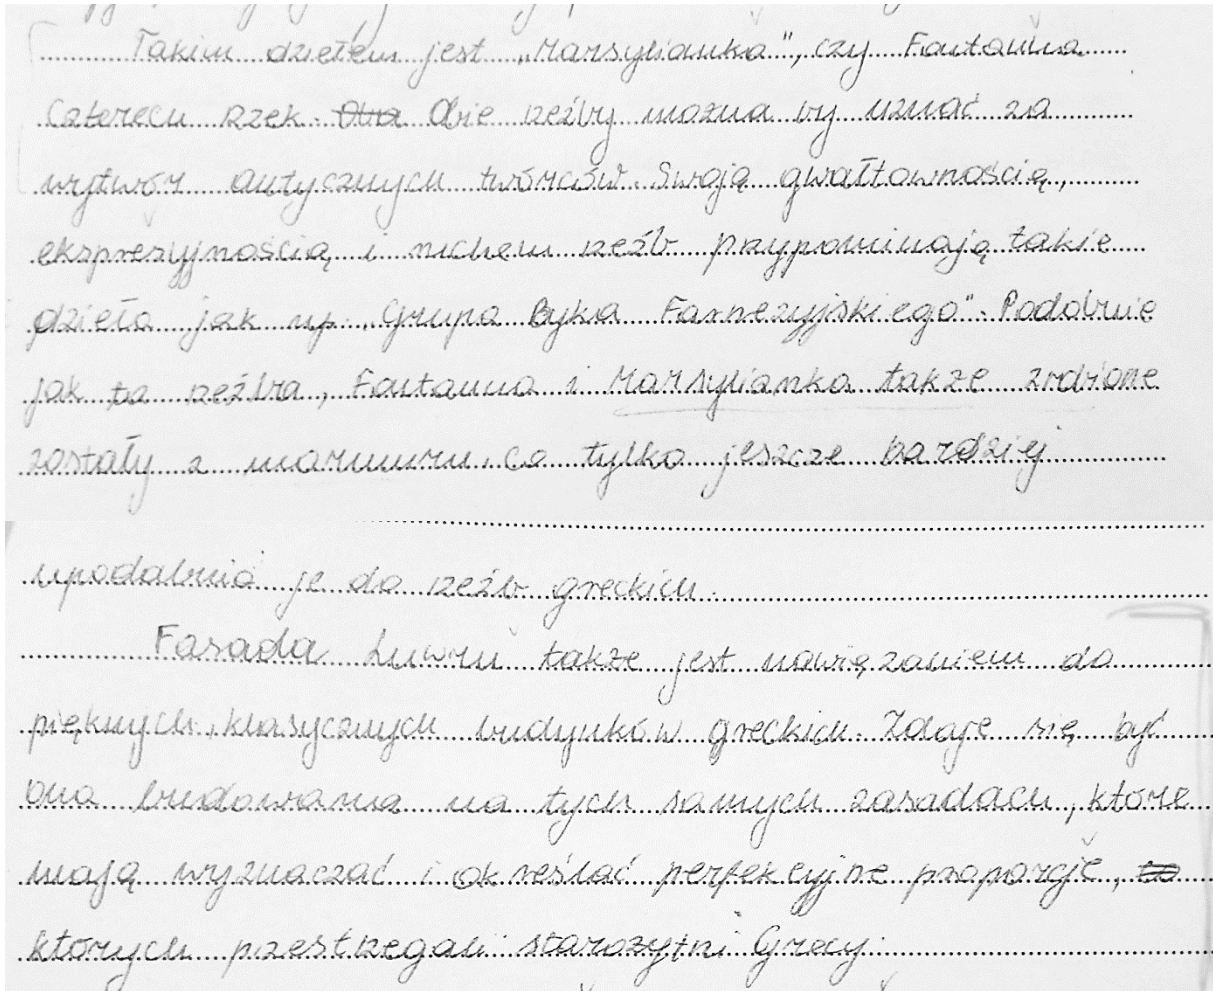 Takim dziełem jest „Marsylianka”, czy Fontanna
Czterech Rzek. Ona Obie rzeźby można by uznać za
wytwór antycznych twórców. Swoją gwałtownością,
ekspresyjnością i ruchem rzeźb przypominają takie
dzieła jak np. „Grupa Byka Farnezyjskiego”. Podobnie
jak ta rzeźba, Fontanna i Marsylianka także zrobione
zostały z marmuru. co tylko jeszcze bardziej
upodabnia je do rzeźb greckich.
Fasada Luwru także jest nawiązaniem do
pięknych, klasycznych budynków greckich. Zdaje się być
ona budowana na tych samych zasadach, które
mają wyznaczać i określać perfekcyjne proporcje,
których przestrzegali starożytni Grecy.